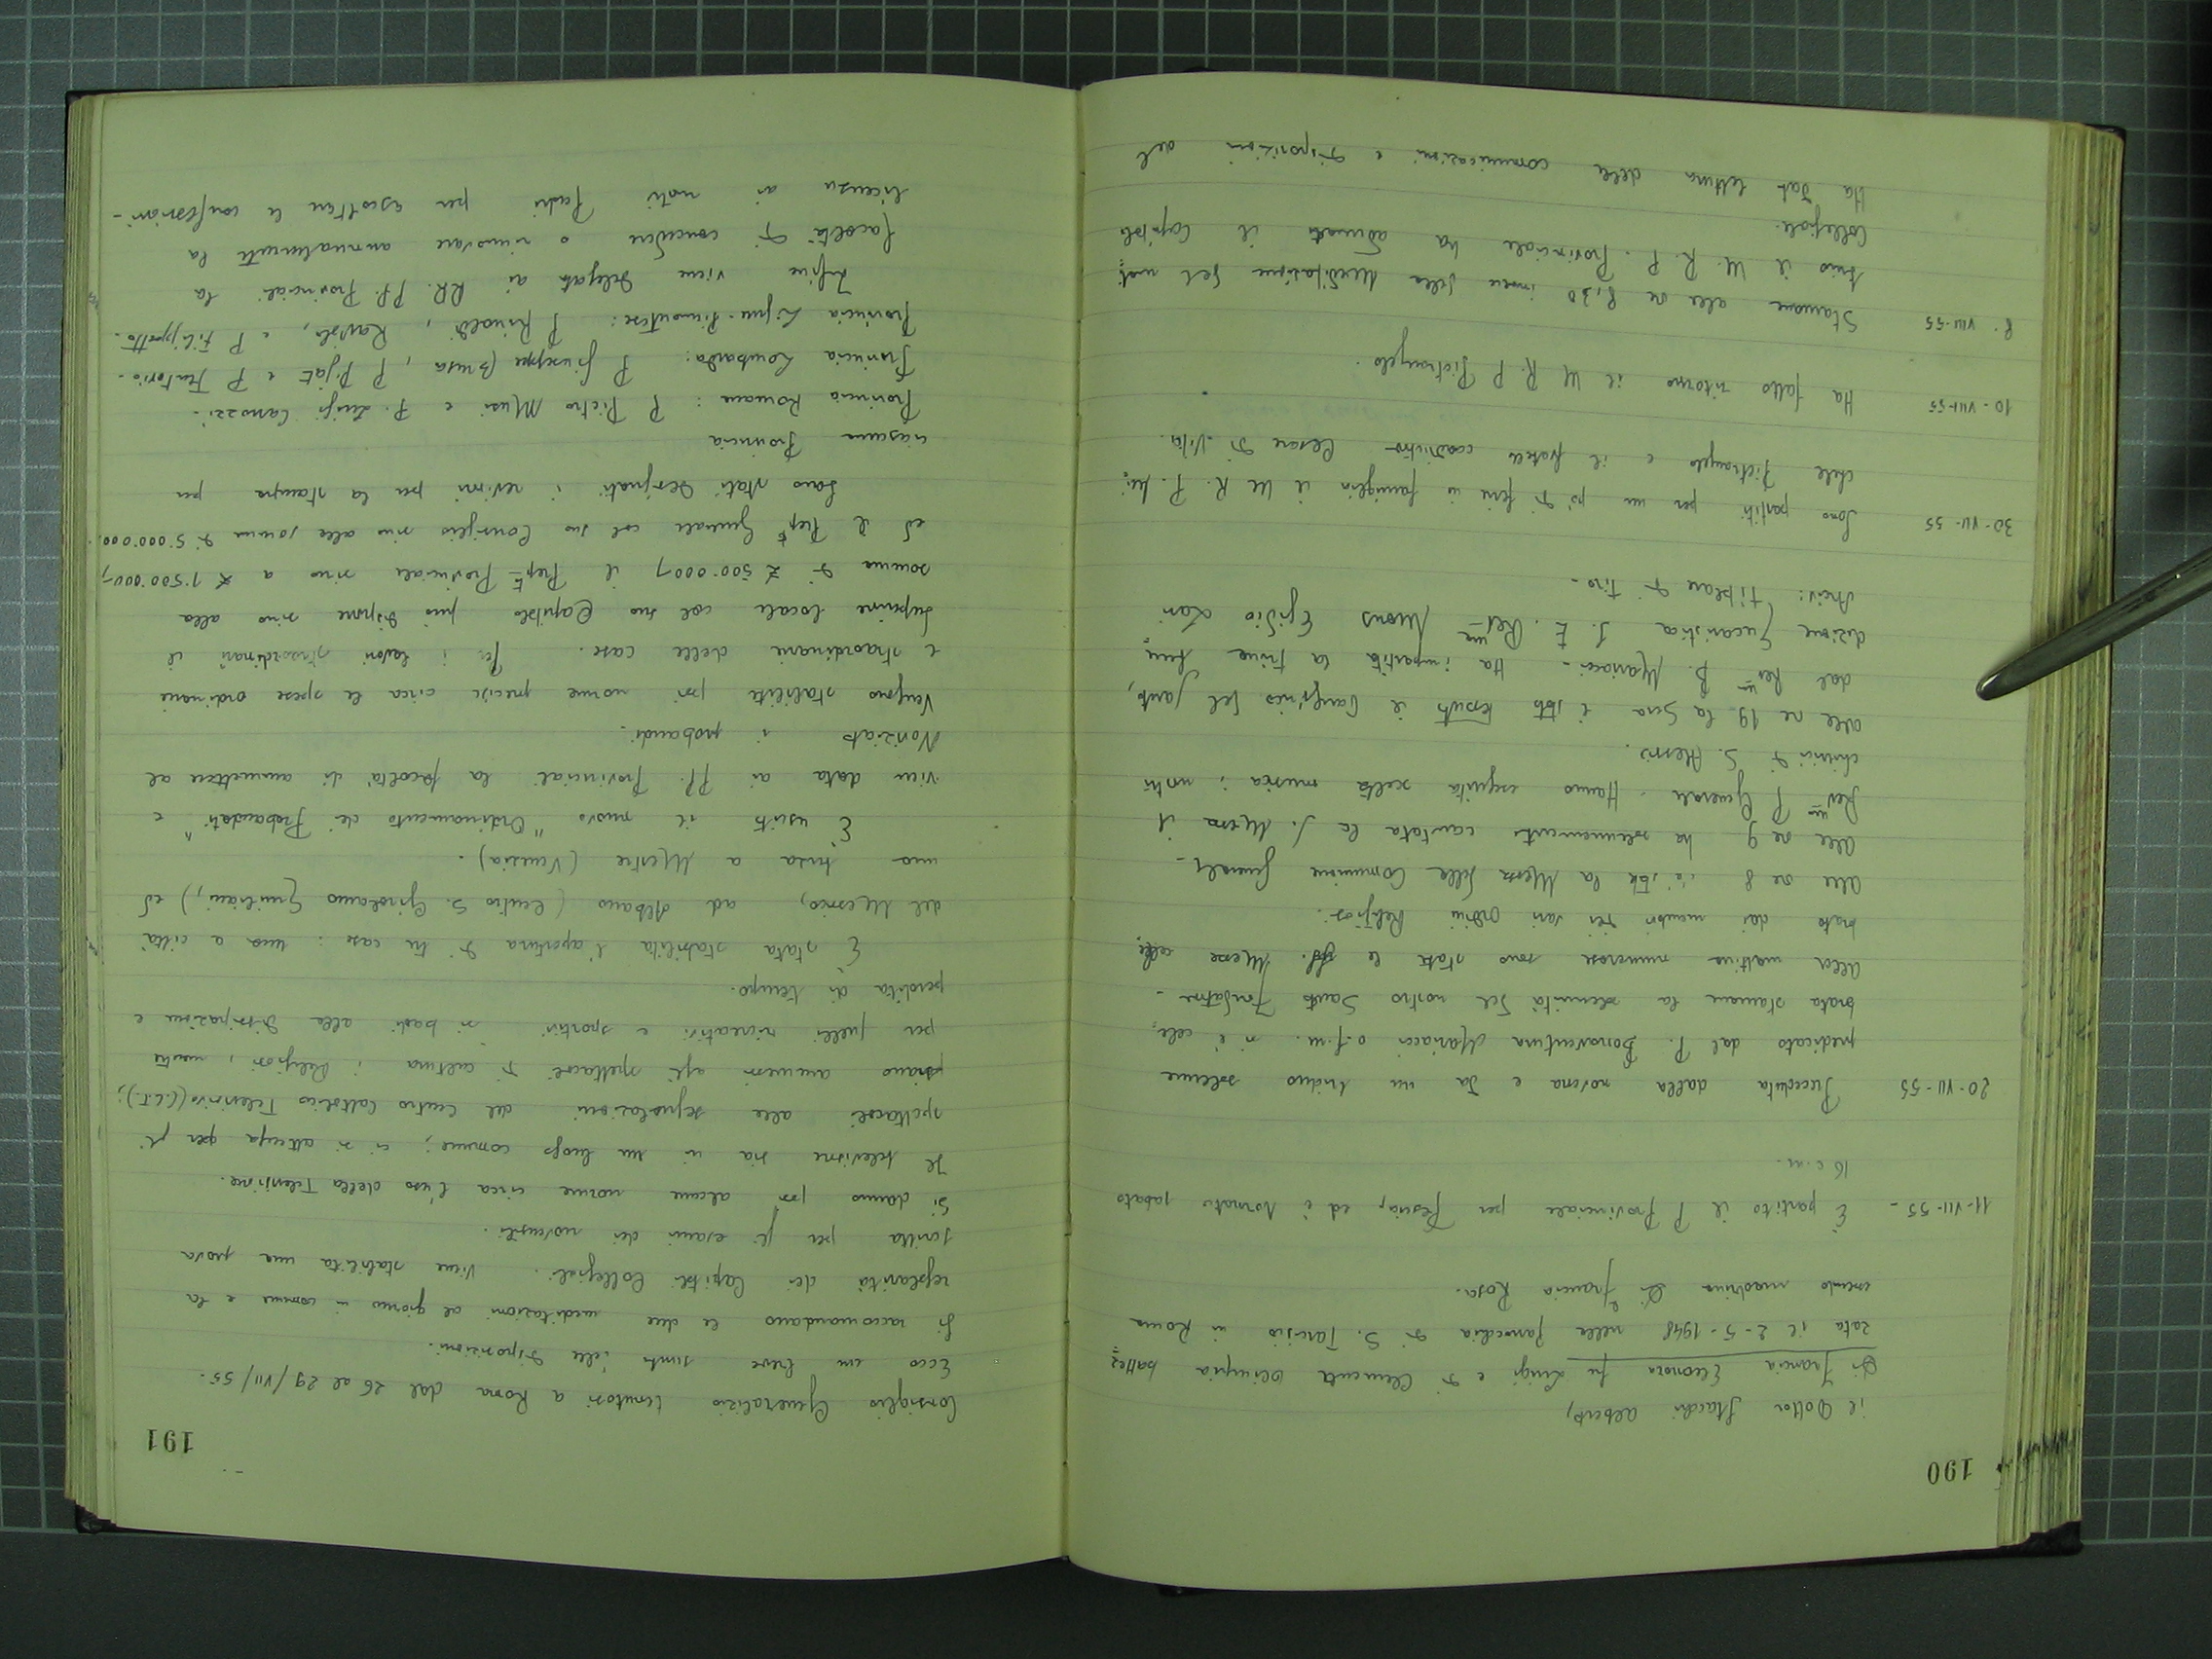 190
il Dottor Stacchi Alberto,
Di Francia Eleonora fu Luigi e di Clementi Olimpia battez=
zata il 2-5-1948 nella parrocchia di S. Tarcisio in Roma
essendo madrina Di Francia Rosa.
11-VII-55 - È partito il P Provinciale per Pescia, ed è tornato sabato
16 c.m.
20-VII-55 Preceduta dalla novena e da un triduo solenne
predicato dal P. Bonaventura Mariacci o.f.m. si è cele=
brata stamane la solennità del nostro Santo Fondatore -
Alla mattina numerose sono state le SS. Messe cele=
brate dai membri dei vari Ordini Religiosi.
Alle ore 8 c'è stata la Messa della Comunione generale -
Alle ore 9 ha solennemente cantata la S. Messa il
Rev.mo P Generale. Hanno eseguita scelta musica i nostri
chierici di S. Alessio.
Alle ore 19 la Sera è stato tessuto il Panegirico del Santo,
dal Rev.mo P. Mariacci - Ha impartita la trina Bene=
dizione Eucaristica S. E. Rev.ma Mons Egidio Lari
Arciv: titolare di Tiro -
30-VII-55 Sono partiti per un pò di ferie in famiglia il M R. P. Mi=
chele Pietrangelo e il fratello coadiutore Cesare Di Vito.
10-VIII-55 Ha fatto ritorno il M R. P Pietrangelo.
8-VIII-55 Stamane alle ore 8,30 invece della Meditazione del mat=
tino il M. R. P. Provinciale ha adunato il Capitolo
Collegiale.
Ha dato lettura delle comunicazioni e disposizioni del
191
Consiglio Generalizio tenutosi a Roma dal 26 al 29/VII/55.
Ecco un breve sunto delle disposizioni.
Si raccomandano le due meditazioni al giorno in comune e la
regolarità dei Capitoli Collegiali. Viene stabilita una prova
scritta per gli esami dei novensili.
Si danno poi alcune norme circa l'uso della Televisione.
Il televisore sia in un luogo comune; ci si attenga per gli
spettacoli alle segnalazioni del Centro Cattolico Televisivo (C.C.T.);
siano ammessi agli spettacoli di cultura i Religiosi, mentre
per quelli ricreativi e sportivi si badi alla dissipazione e
perdita di tempo.
È stata stabilita l'apertura di tre case: una a città
del Messico, ad Albano (Centro S. Girolamo Emiliani), ed
una terza a Mestre (Venezia).
È uscito il nuovo "Ordinamento dei Probandati" e
vien data ai PP. Provinciali la facoltà di ammettere al
Noviziato i probandi -
Vengono stabilite poi norme precise circa le spese ordinarie
e straordinarie delle case. Per i lavori straordinari il
Superiore locale col suo Capitolo può disporre sino alla
somma di £ 500.000, il Prep.to Provinciale sino a £ 1.500.000,
ed il Prep.to Generale col suo Consiglio sino alla somma di 5.000.000.
Sono stati designati i revisori per la stampa per
ciascuna Provincia
Provincia Romana: P Pietro Musi e P. Luigi Carrozzi -
Provincia Lombarda: P Giuseppe Brusa, P Pigato e P Tentorio -
Provincia Ligure-Piemontese: P Rinaldi, Ravioli, e P Filippetto -
Infine viene delegata ai RR. PP. Provinciali la
facoltà di concedere o rinnovare annualmente la
licenza ai nostri Padri per ascoltare le confessioni -